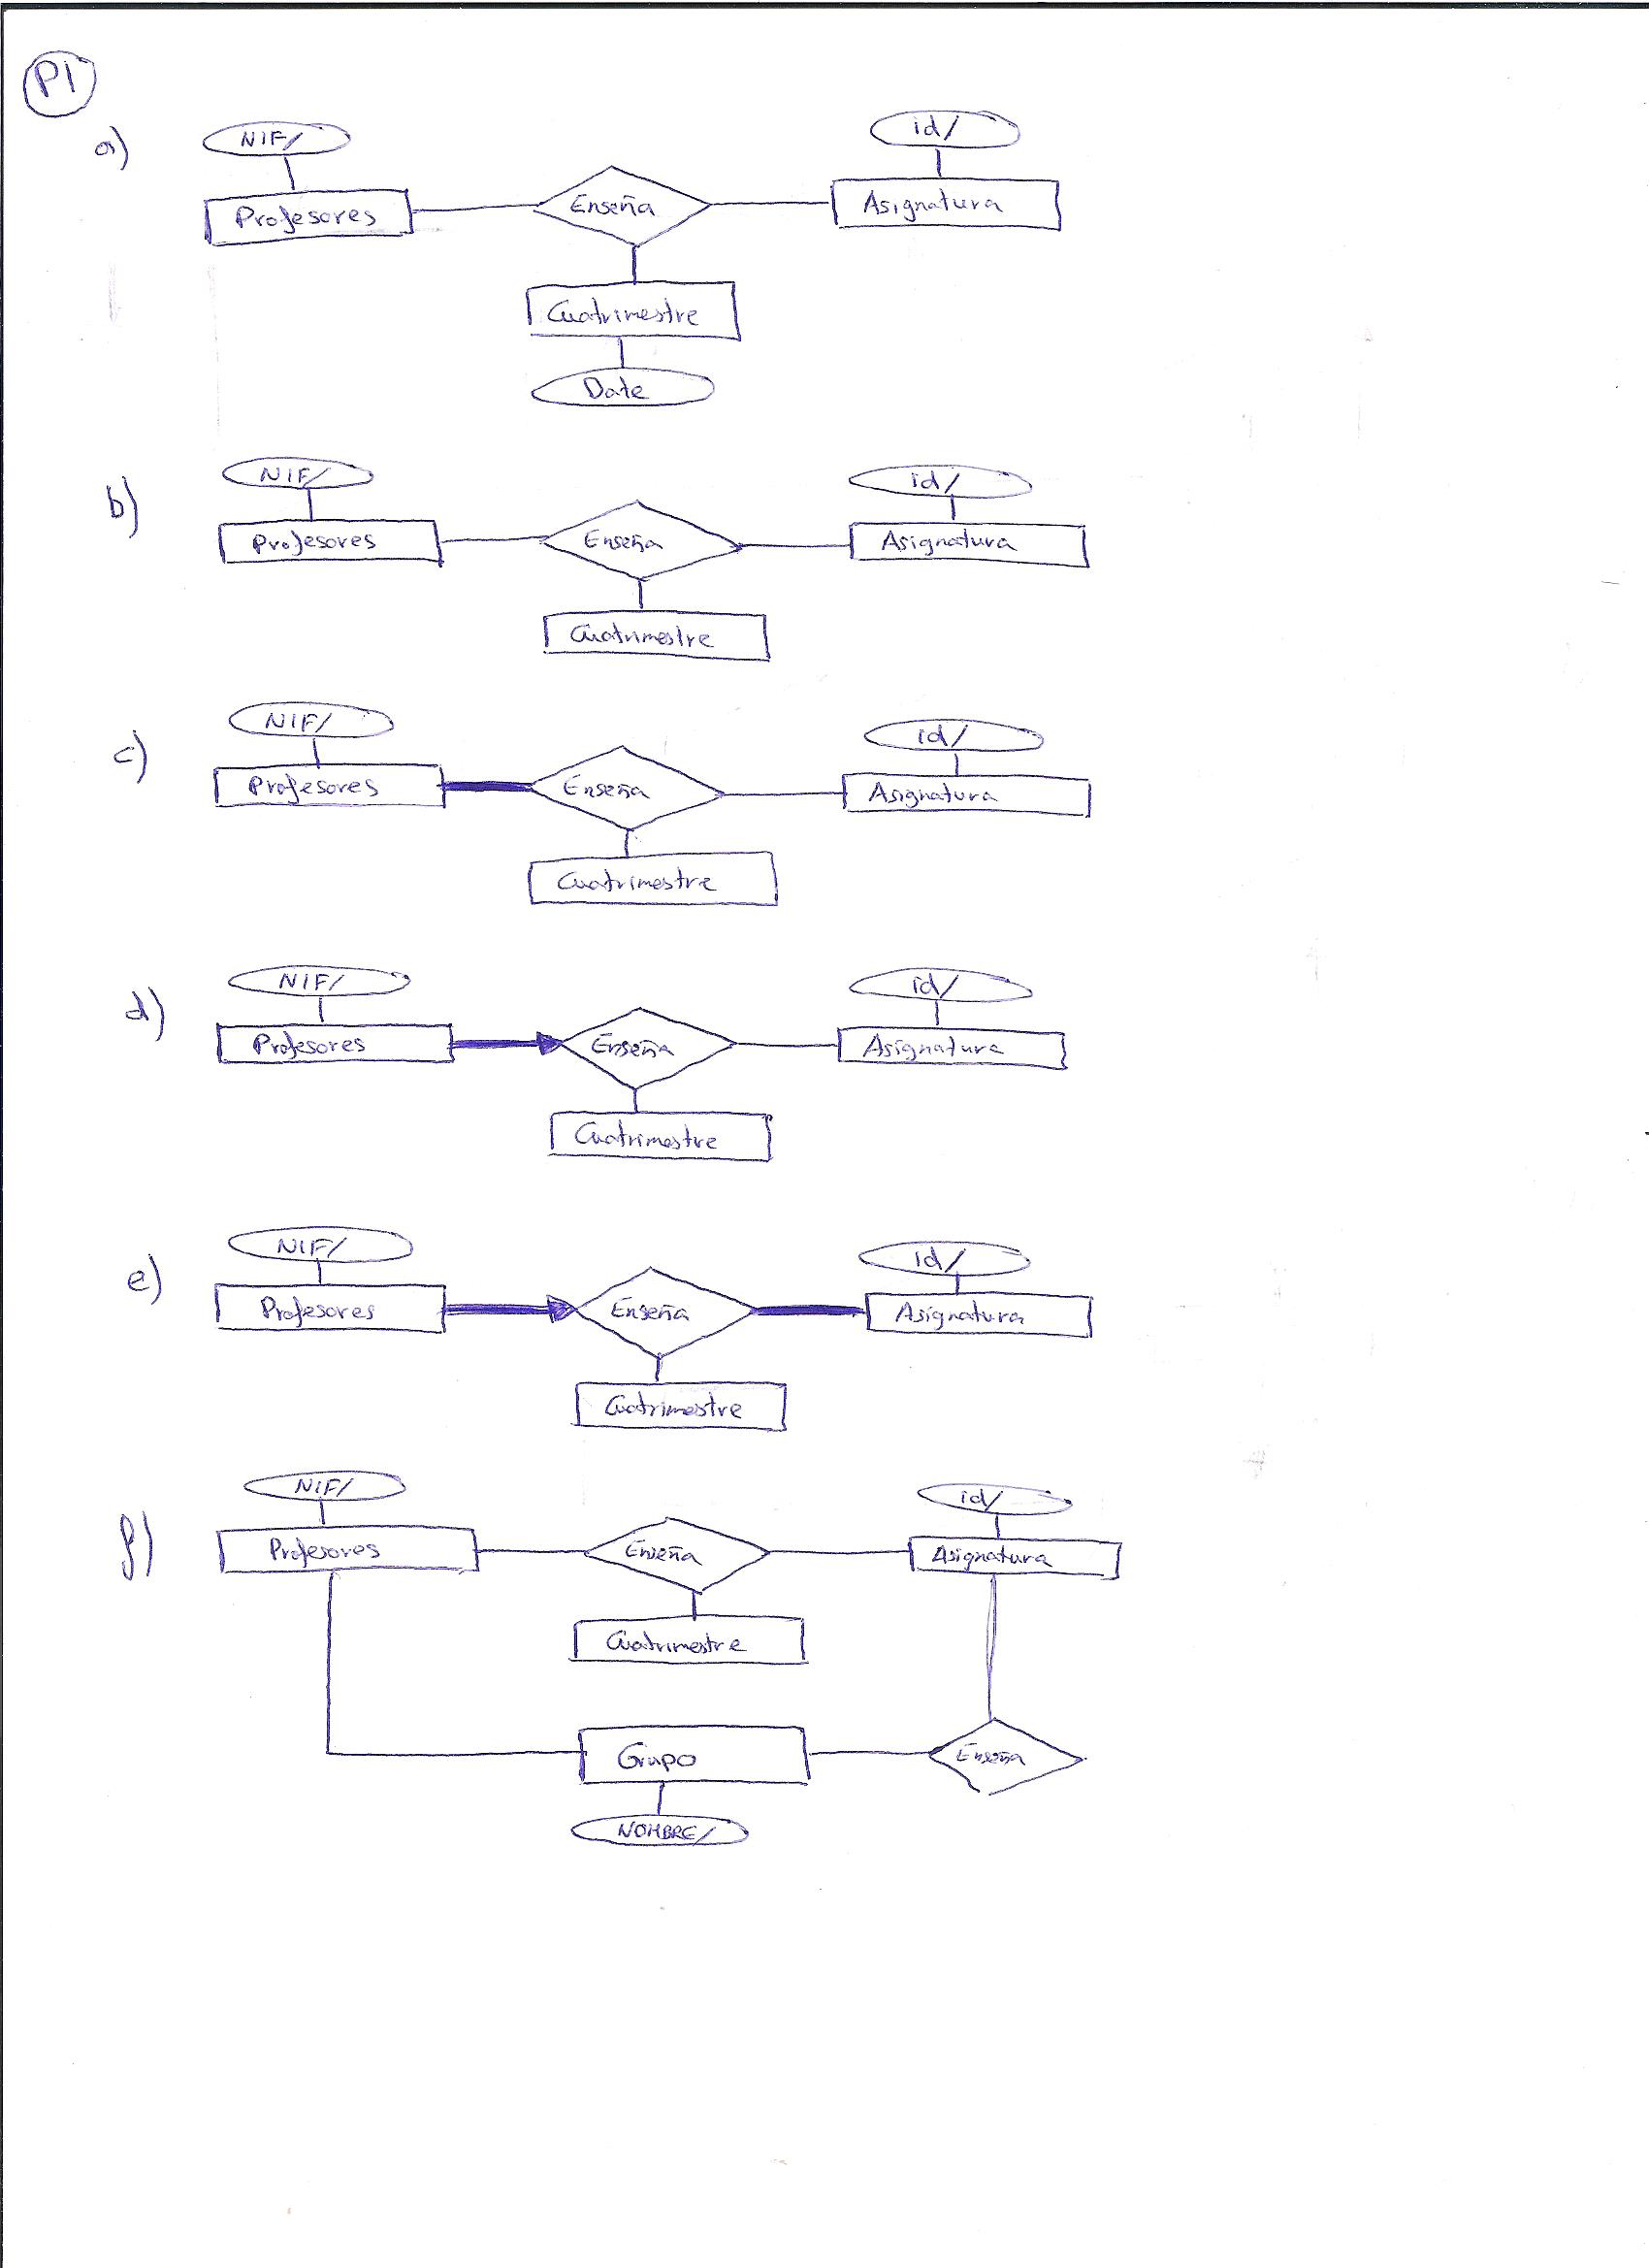 P1
a)
NIF/
id/
Profesores
Enseña
Asignatura
Cuatrimestre
Date
b)
NIF/
id/
Profesores
Enseña
Asignatura
Cuatrimestre
c)
NIF/
id/
Profesores
Enseña
Asignatura
Cuatrimestre
d)
NIF/
id/
Profesores
Enseña
Asignatura
Cuatrimestre
e)
NIF/
id/
Profesores
Enseña
Asignatura
Cuatrimestre
f)
NIF/
id/
Profesores
Enseña
Asignatura
Cuatrimestre
Grupo
Enseña
NOMBRE/